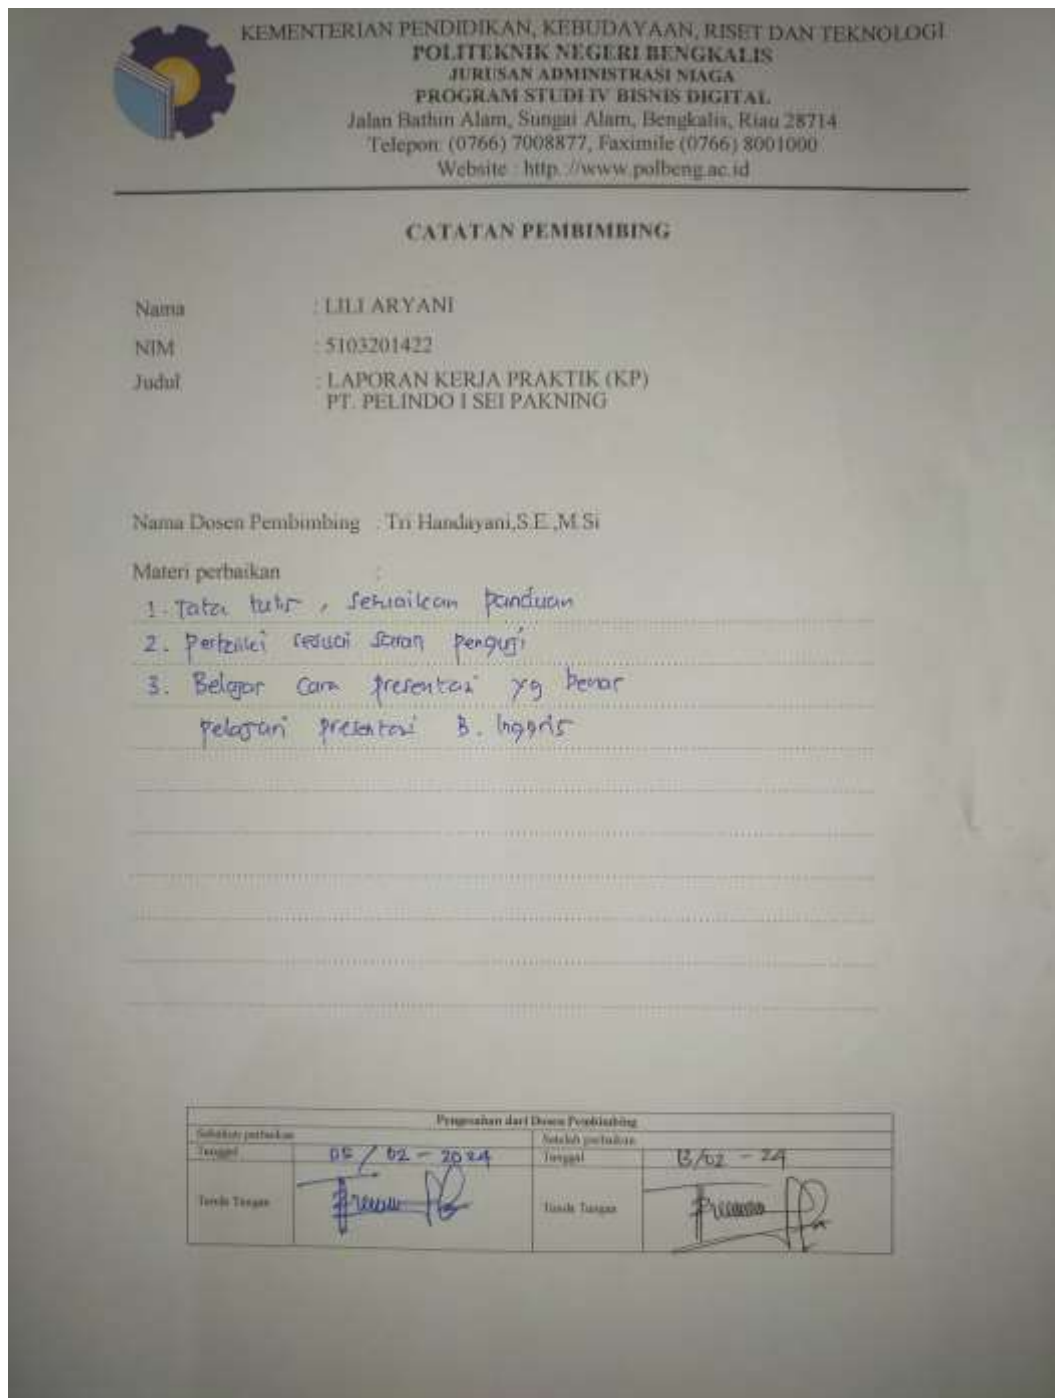 KEMENTERIAN PENDIDIKAN, KEBUDAYAAN, RISET DAN TEKNOLOGI
POLITEKNIK NEGERI BENGKALIS
JURUSAN ADMINISTRASI NIAGA
PROGRAM STUDI IV BISNIS DIGITAL
Jalan Bathin Alam, Sungai Alam, Bengkalis, Riau 28714
Telepon: (0766) 7008877, Faximile (0766) 8001000
Website : http.://www.polbeng.ac.id
CATATAN PEMBIMBING
Nama : LILI ARYANI
NIM : 5103201422
Judul : LAPORAN KERJA PRAKTIK (KP)
PT. PELINDO I SEI PAKNING
Nama Dosen Pembimbing : Tri Handayani,S.E.,M.Si
Materi perbaikan :
1. Tata tulis , sesuaikan panduan
2. Perbaiki sesuai saran penguji
3. Belajar cara presentasi yg benar
pelajari presentasi B. Inggris
Pengesahan dari Dosen Pembimbing
Sebelum perbaikan Setelah perbaikan
Tanggal 05 / 02 - 2024 Tanggal 13/02 - 24
Tanda Tangan Tanda Tangan